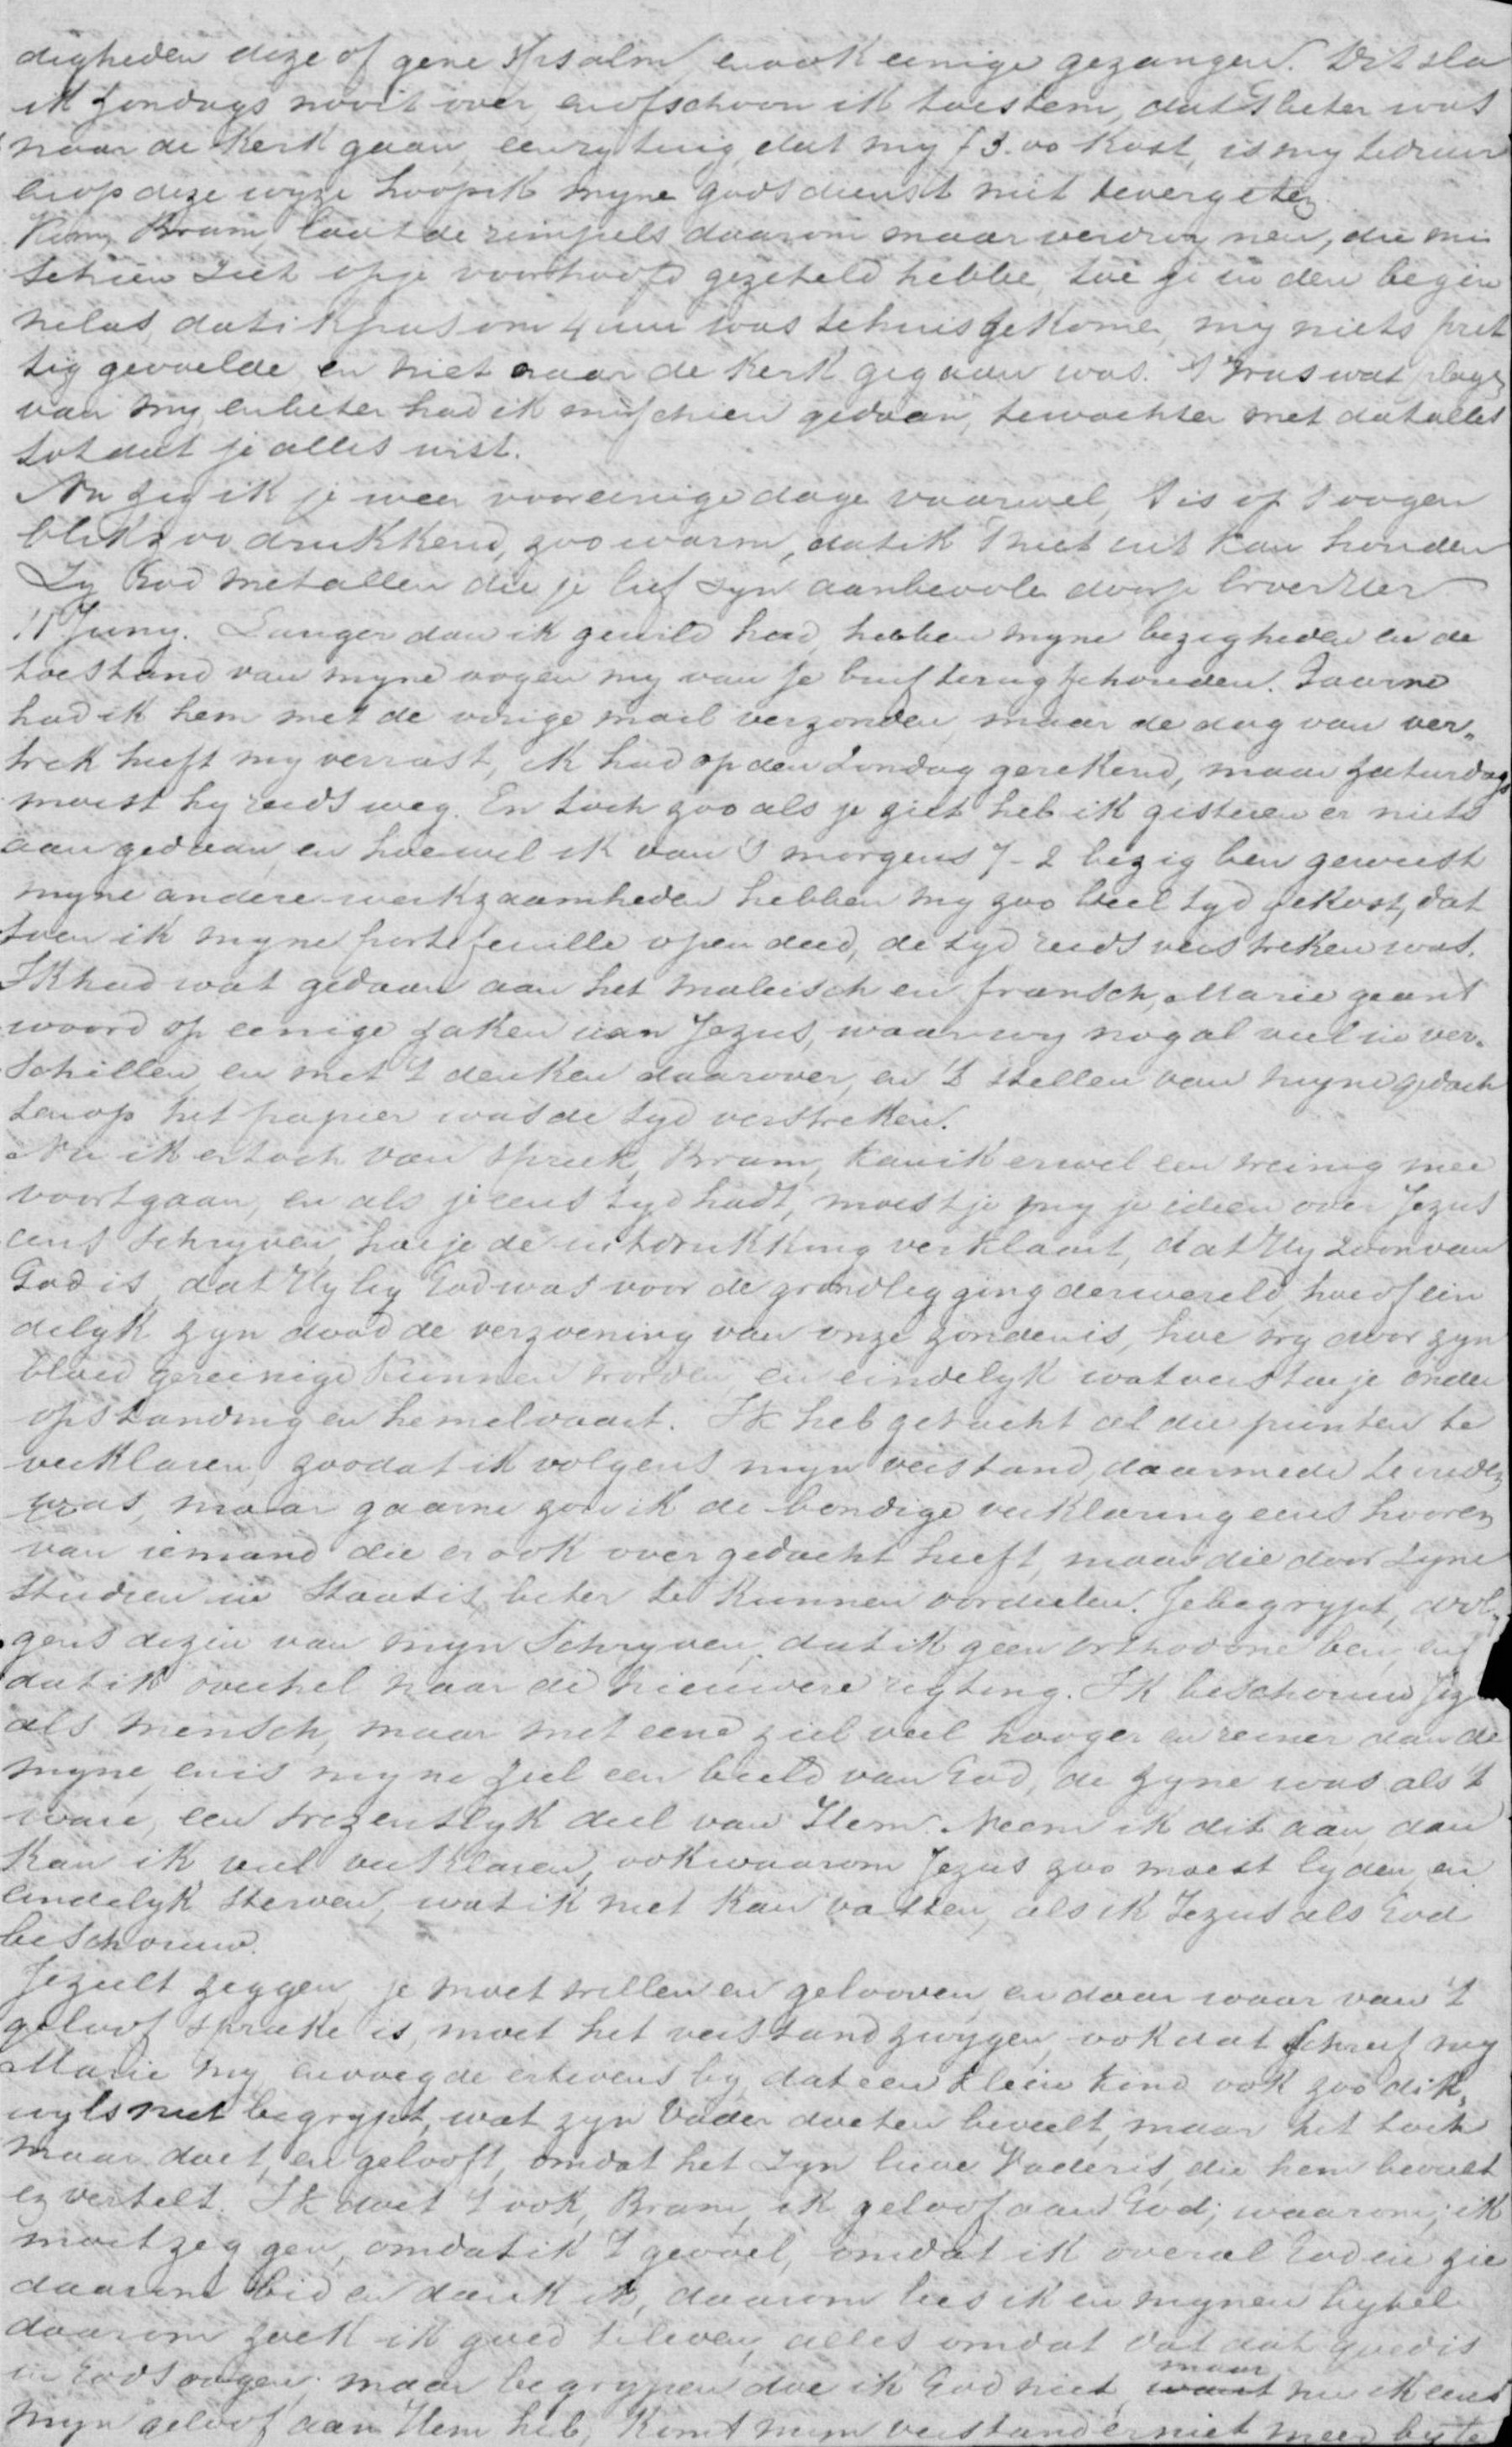 digheden deze of gene Psalm, en ook eenige gezangen. Dit sla
ik Zondags nooit over, en ofschoon ik toestem, dat 't beter was
naar de Kerk gaan, een rytuig, dat my f 3.00 kost, is my te duur
en op deze wyze hoop ik myne godsdienst niet te vergeten
Kom, Bram, laat de rimpels daarom maar verdwynen, die mis
schien zich op je voorhoofd gezeteld hebbe, toe je in den begin
ne las, dat ik pas om 4 uur was tehuis gekome, my niets pret
tig gevoelde en niet naar de Kerk gegaan was. 't Was wat plagen
van my, en beter had ik misschien gedaan, te wachten met dat alles
totdat je alles wist.
Nu zeg ik je weer voor eenige dage vaarwel, 't is op 't oogen
blik zoo drukkend, zoo warm, dat ik 't niet uit kan houden
Zy God met allen die je lief zyn aanbevole door je broeder
11 Juny. Langer dan ik gewild had, hebben myne bezigheden en de
toestand van myne oogen my van je brief teruggehouden. Gaarne
had ik hem met de vorige mail verzonden, maar de dag van ver„
trek heeft my verrast, ik had op den Zondag gerekend, maar Zaturdags
moest hy reeds weg. En toch zoo als je ziet heb ik gisteren er niets
aan gedaan, en hoewel ik van 's morgens 7-2 bezig ben geweest
myne andere werkzaamheden hebben my zoo veel tyd gekost, dat
toen ik myne portefeuille open deed, de tyd reeds verstreken was.
Ik had wat gedaan aan het maleisch en fransch, Marie geant
woord op eenige zaken van Jezus, waar wy nogal veel in ver„
schillen, en met 't denken daarover, en 't stellen van myne gedach
ten op het papier was de tyd verstreken.
Nu ik er toch van spreek, Bram, kan ik er wel een weinig mee
voortgaan, en als je eens tyd hadt, moest je my je ideen over Jezus
eens schryven, hoe je de uitdrukking verklaart, dat Hy zoon van
God is, dat Hy by God was voor de grondlegging der wereld, hoe of ein
delyk zyn dood de verzoening van onze zonden is, hoe wy door zyn
bloed gereinigd kunnen worden en eindelyk wat versta je onder
opstanding en hemelvaart. Ik heb getracht al die punten te
verklaren, zoodat ik volgens myn verstand, daarmede tevreden
was, maar gaarne zou ik de bondige verklaring eens hooren
van iemand die er ook over gedacht heeft, maar die door zyne
studien in staat is beter te kunnen oordeelen. Je begrypt, vol„
gens dezin van myn schryven, dat ik geen orthodoxe ben, en
dat ik overhel naar de nieuwere rigting. Ik beschouw Jez
als mensch, maar met eene ziel veel hooger en reiner dan de
myne, en is myne ziel een beeld van God, de zyne was als 't
ware, een wezentlyk deel van Hem. Neem ik dit aan, dan
kan ik veel verklaren, ook waarom Jezus zoo moest lyden, en
eindelyk sterven, wat ik niet kan vatten, als ik Jezus als God
beschouw.
Je zult zeggen, je moet willen en gelooven, en daar waar van 't
geloof sprake is, moet het verstand zwygen, ook dat schreef my
Marie my, en voegde er tevens by, dat een klein kind ook zoo dik„
wyls niet begrypt, wat zyn Vader doet en beveelt, maar het toch
maar doet, en gelooft, omdat het zyn lieve Vader is, die hem beveelt
en vertelt. Ik doet 't ook, Bram, ik geloof aan God; waarom; ik
moet zeggen, omdat ik 't gevoel, omdat ik overal God in zie
daarom bid en dank ik, daarom lees ik in mynen bybel
daarom zoek ik goed te leven, alles, omdat dat dat goed is
in Gods oogen; maar begrypen doe ik God niet, want maar nu ik eens
myn geloof aan Hem heb, komt myn verstand er niet meer by te